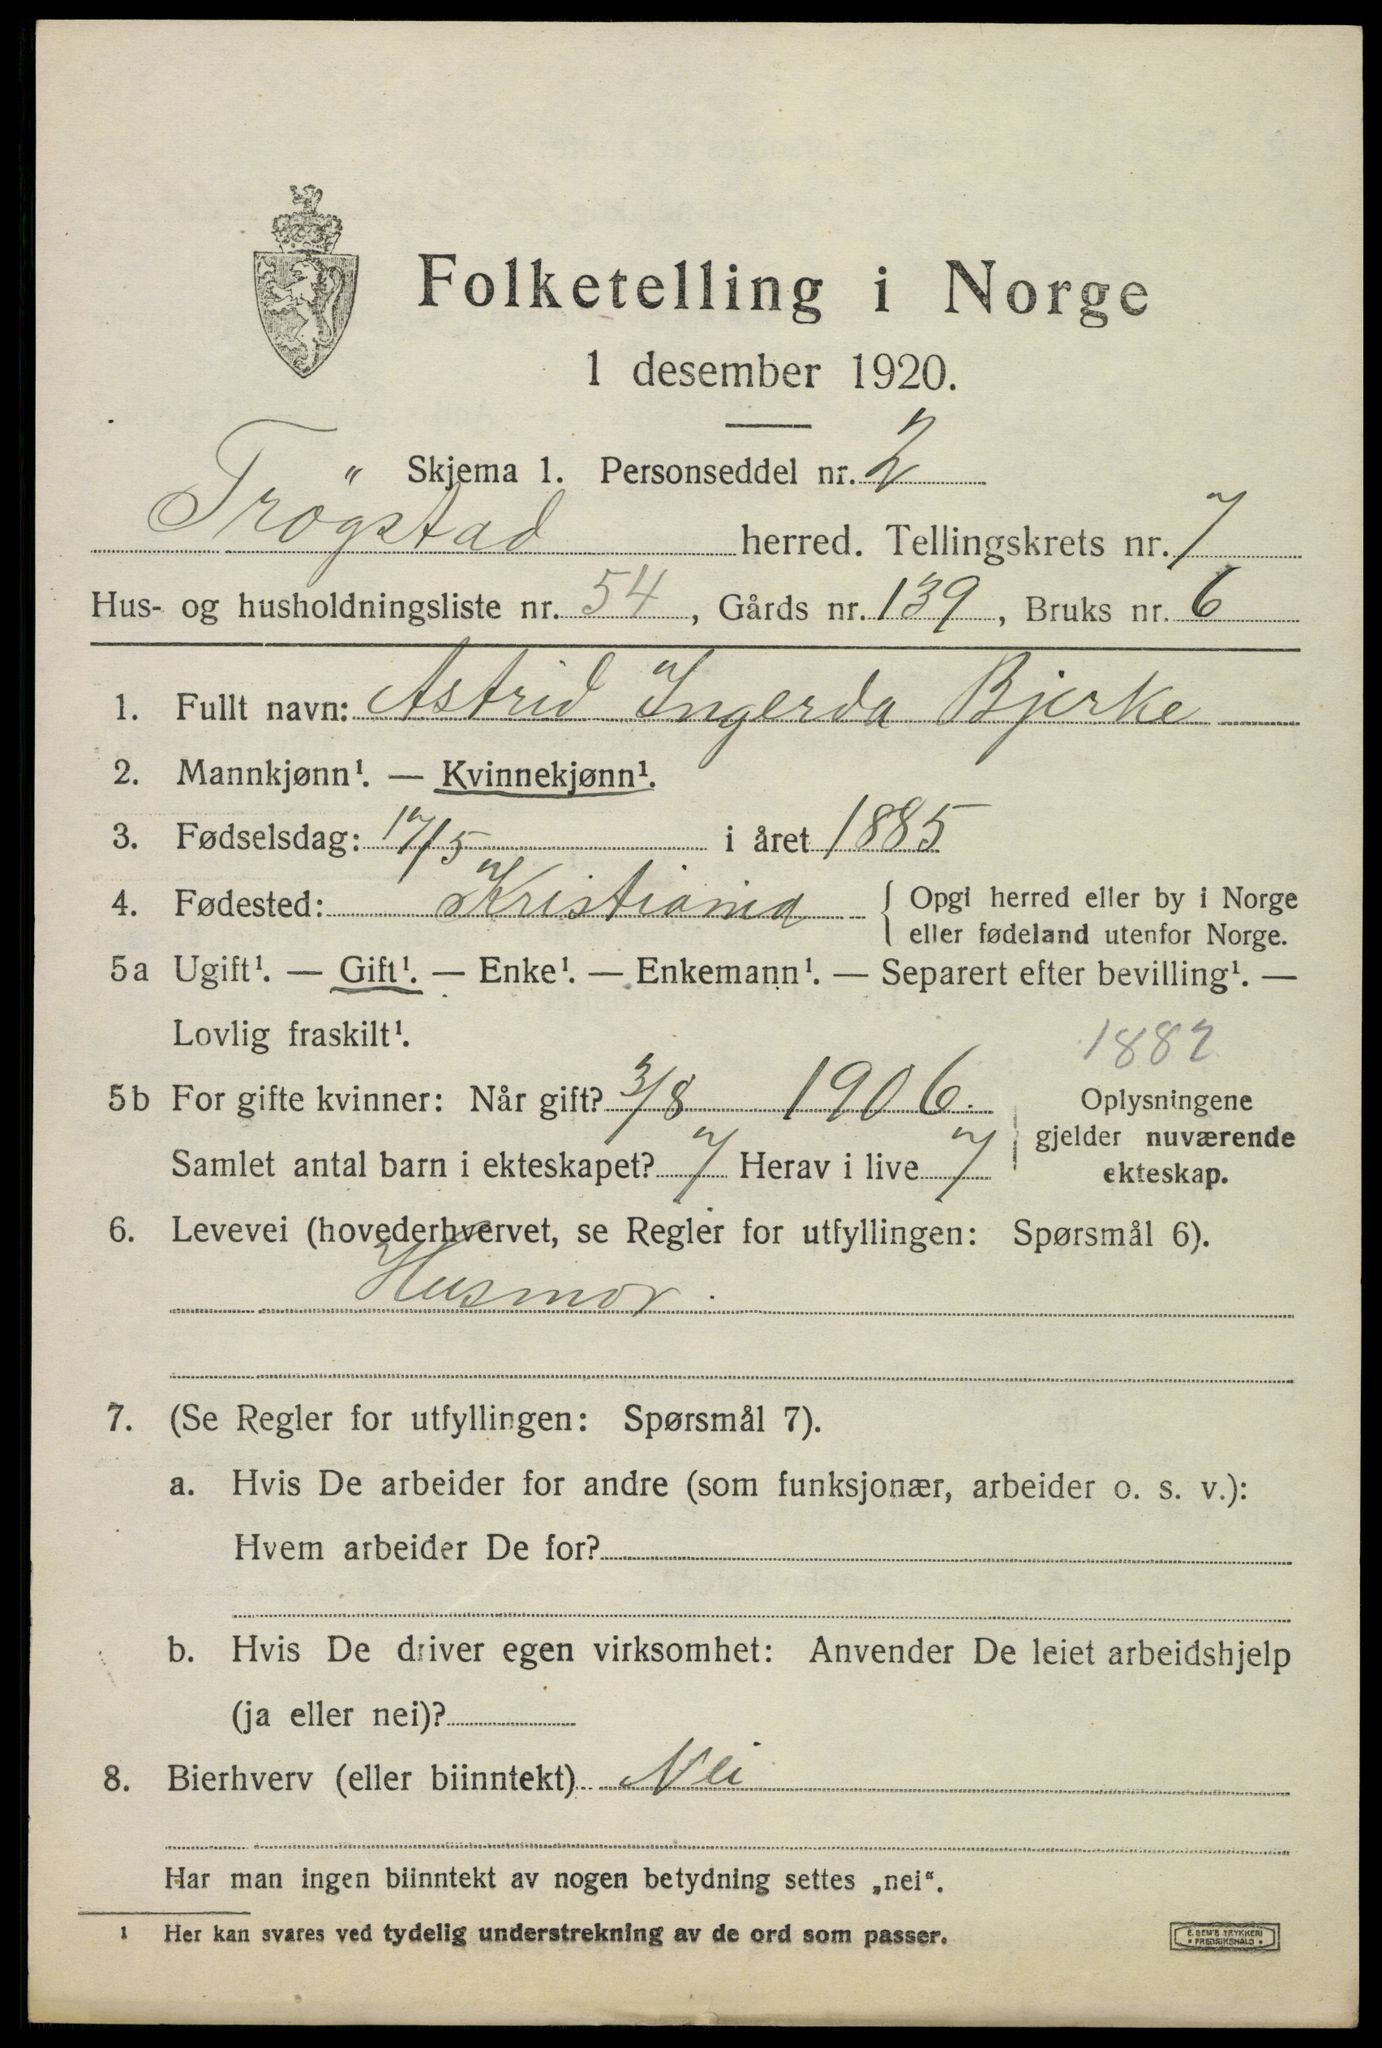 Folketelling i Norge
1 desember 1920.
Skjema 1. Personseddel nr. 2
Trögstad herred. Tellingskrets nr. 7
Hus- og husholdningsliste nr. 54, Gårds nr. 139, Bruks nr. 6
1. Fullt navn: Astrid Ingerda Bjerke
2. Mannkjønn¹. — Kvinnekjønn¹.
3. Fødselsdag: 17/5 i året 1885
4. Fødested: Kristiania { Opgi herred eller by i Norge
eller fødeland utenfor Norge.
5a Ugift¹. — Gift¹. — Enke¹. — Enkemann¹. — Separert efter bevilling¹. —
Lovlig fraskilt¹.
1882
5b For gifte kvinner: Når gift? 3/8 1906. Oplysningene
gjelder nuværende
Samlet antal barn i ekteskapet? 7 Herav i live 7 ekteskap.
6. Levevei (hovederhvervet, se Regler for utfyllingen: Spørsmål 6).
Husmor.
7. (Se Regler for utfyllingen: Spørsmål 7).
a. Hvis De arbeider for andre (som funksjonær, arbeider o. s. v.):
Hvem arbeider De for?
b. Hvis De driver egen virksomhet: Anvender De leiet arbeidshjelp
(ja eller nei)?
8. Bierhverv (eller biinntekt) Nei
Har man ingen biinntekt av nogen betydning settes „nei“.
¹ Her kan svares ved tydelig understrekning av de ord som passer.
E. SEM'S TRYKKERI
• FREDRIKSHALD •